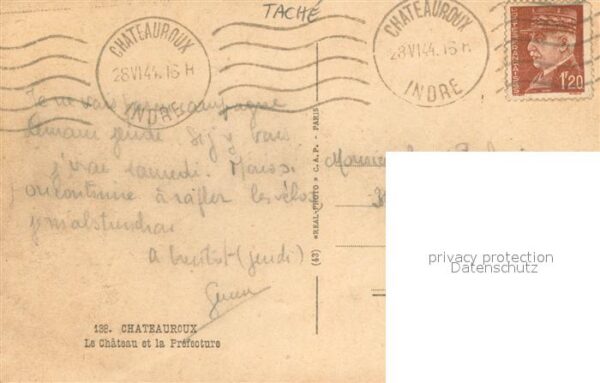 TACHÉ
CHATEAUROUX
28 VI 44. 16 H
INDRE
CHATEAUROUX
28 VI 44. 16 H
INDRE
1F20
Je ne vais campagne
demain jeudi si j'y vais
j'irai samedi. Mais si
on continue à rafler les vélos
à bientôt (jeudi)
Monsieur
(43) «REAL-PHOTO» C.A.P. - PARIS
138. CHATEAUROUX
Le Château et la Préfecture
privacy protection
Datenschutz